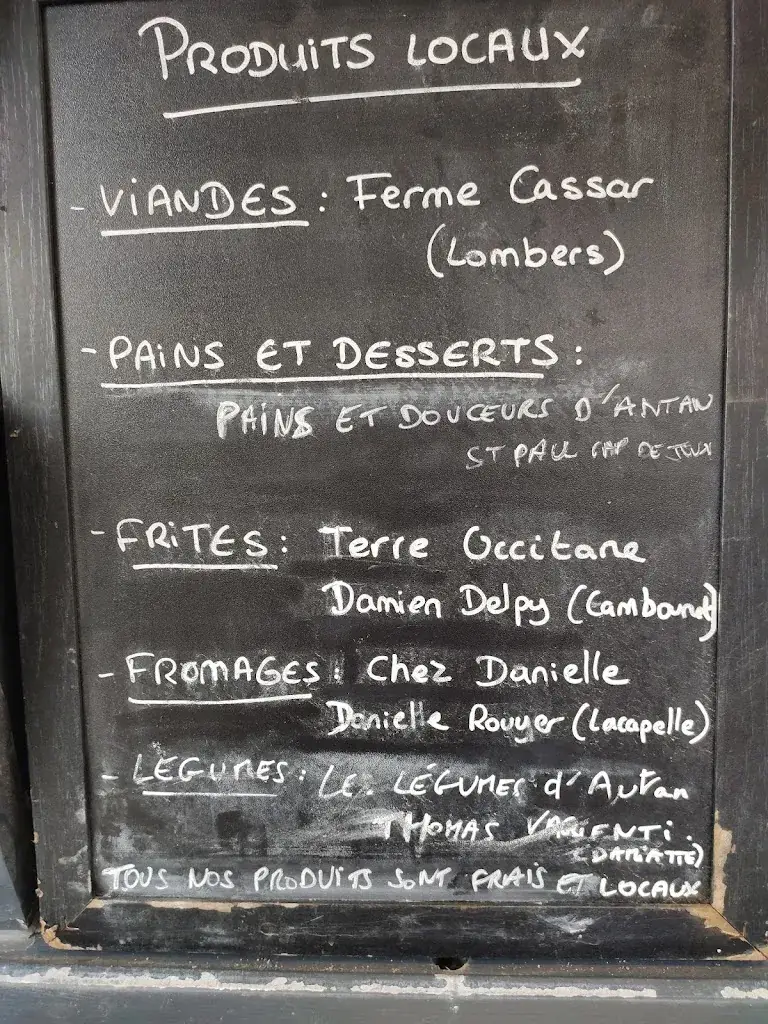 PRODUITS LOCAUX
- VIANDES : Ferme Cassar
(Lombers)
- PAINS ET DESSERTS :
PAINS ET DOUCEURS D'ANTAN
ST PAUL CAP DE JOUX
- FRITES : Terre Occitane
Damien Delpy (Cambounet)
- FROMAGES : Chez Danielle
Danielle Rouyer (Lacapelle)
- LÉGUMES : LÉGUMES d'Autan
THOMAS
(DAMIATTE)
TOUS NOS PRODUITS SONT FRAIS ET LOCAUX